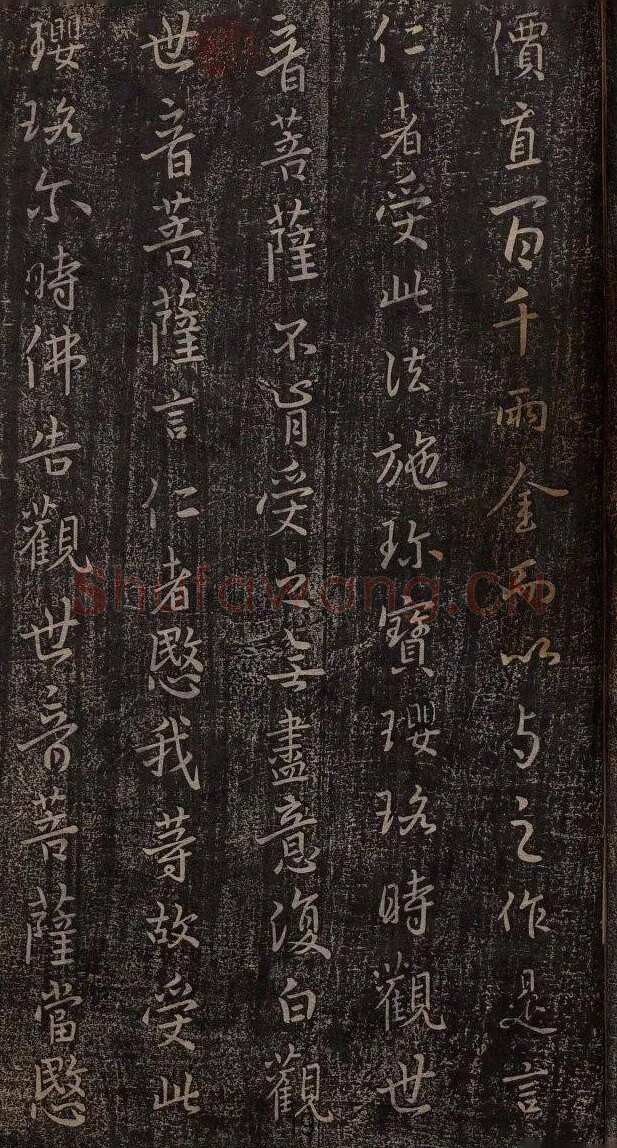 價直百千兩金而以与之作是言
仁者受此法施珎寶瓔珞時觀世
音菩薩不肯受之无盡意復白觀
世音菩薩言仁者愍我等故受此
瓔珞尒時佛告觀世音菩薩當愍
Shufawang.CN